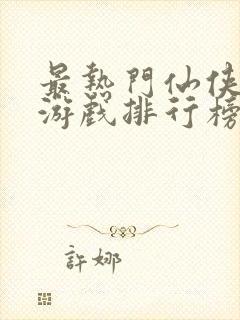 最熱門仙俠
游戲排行榜
許娜